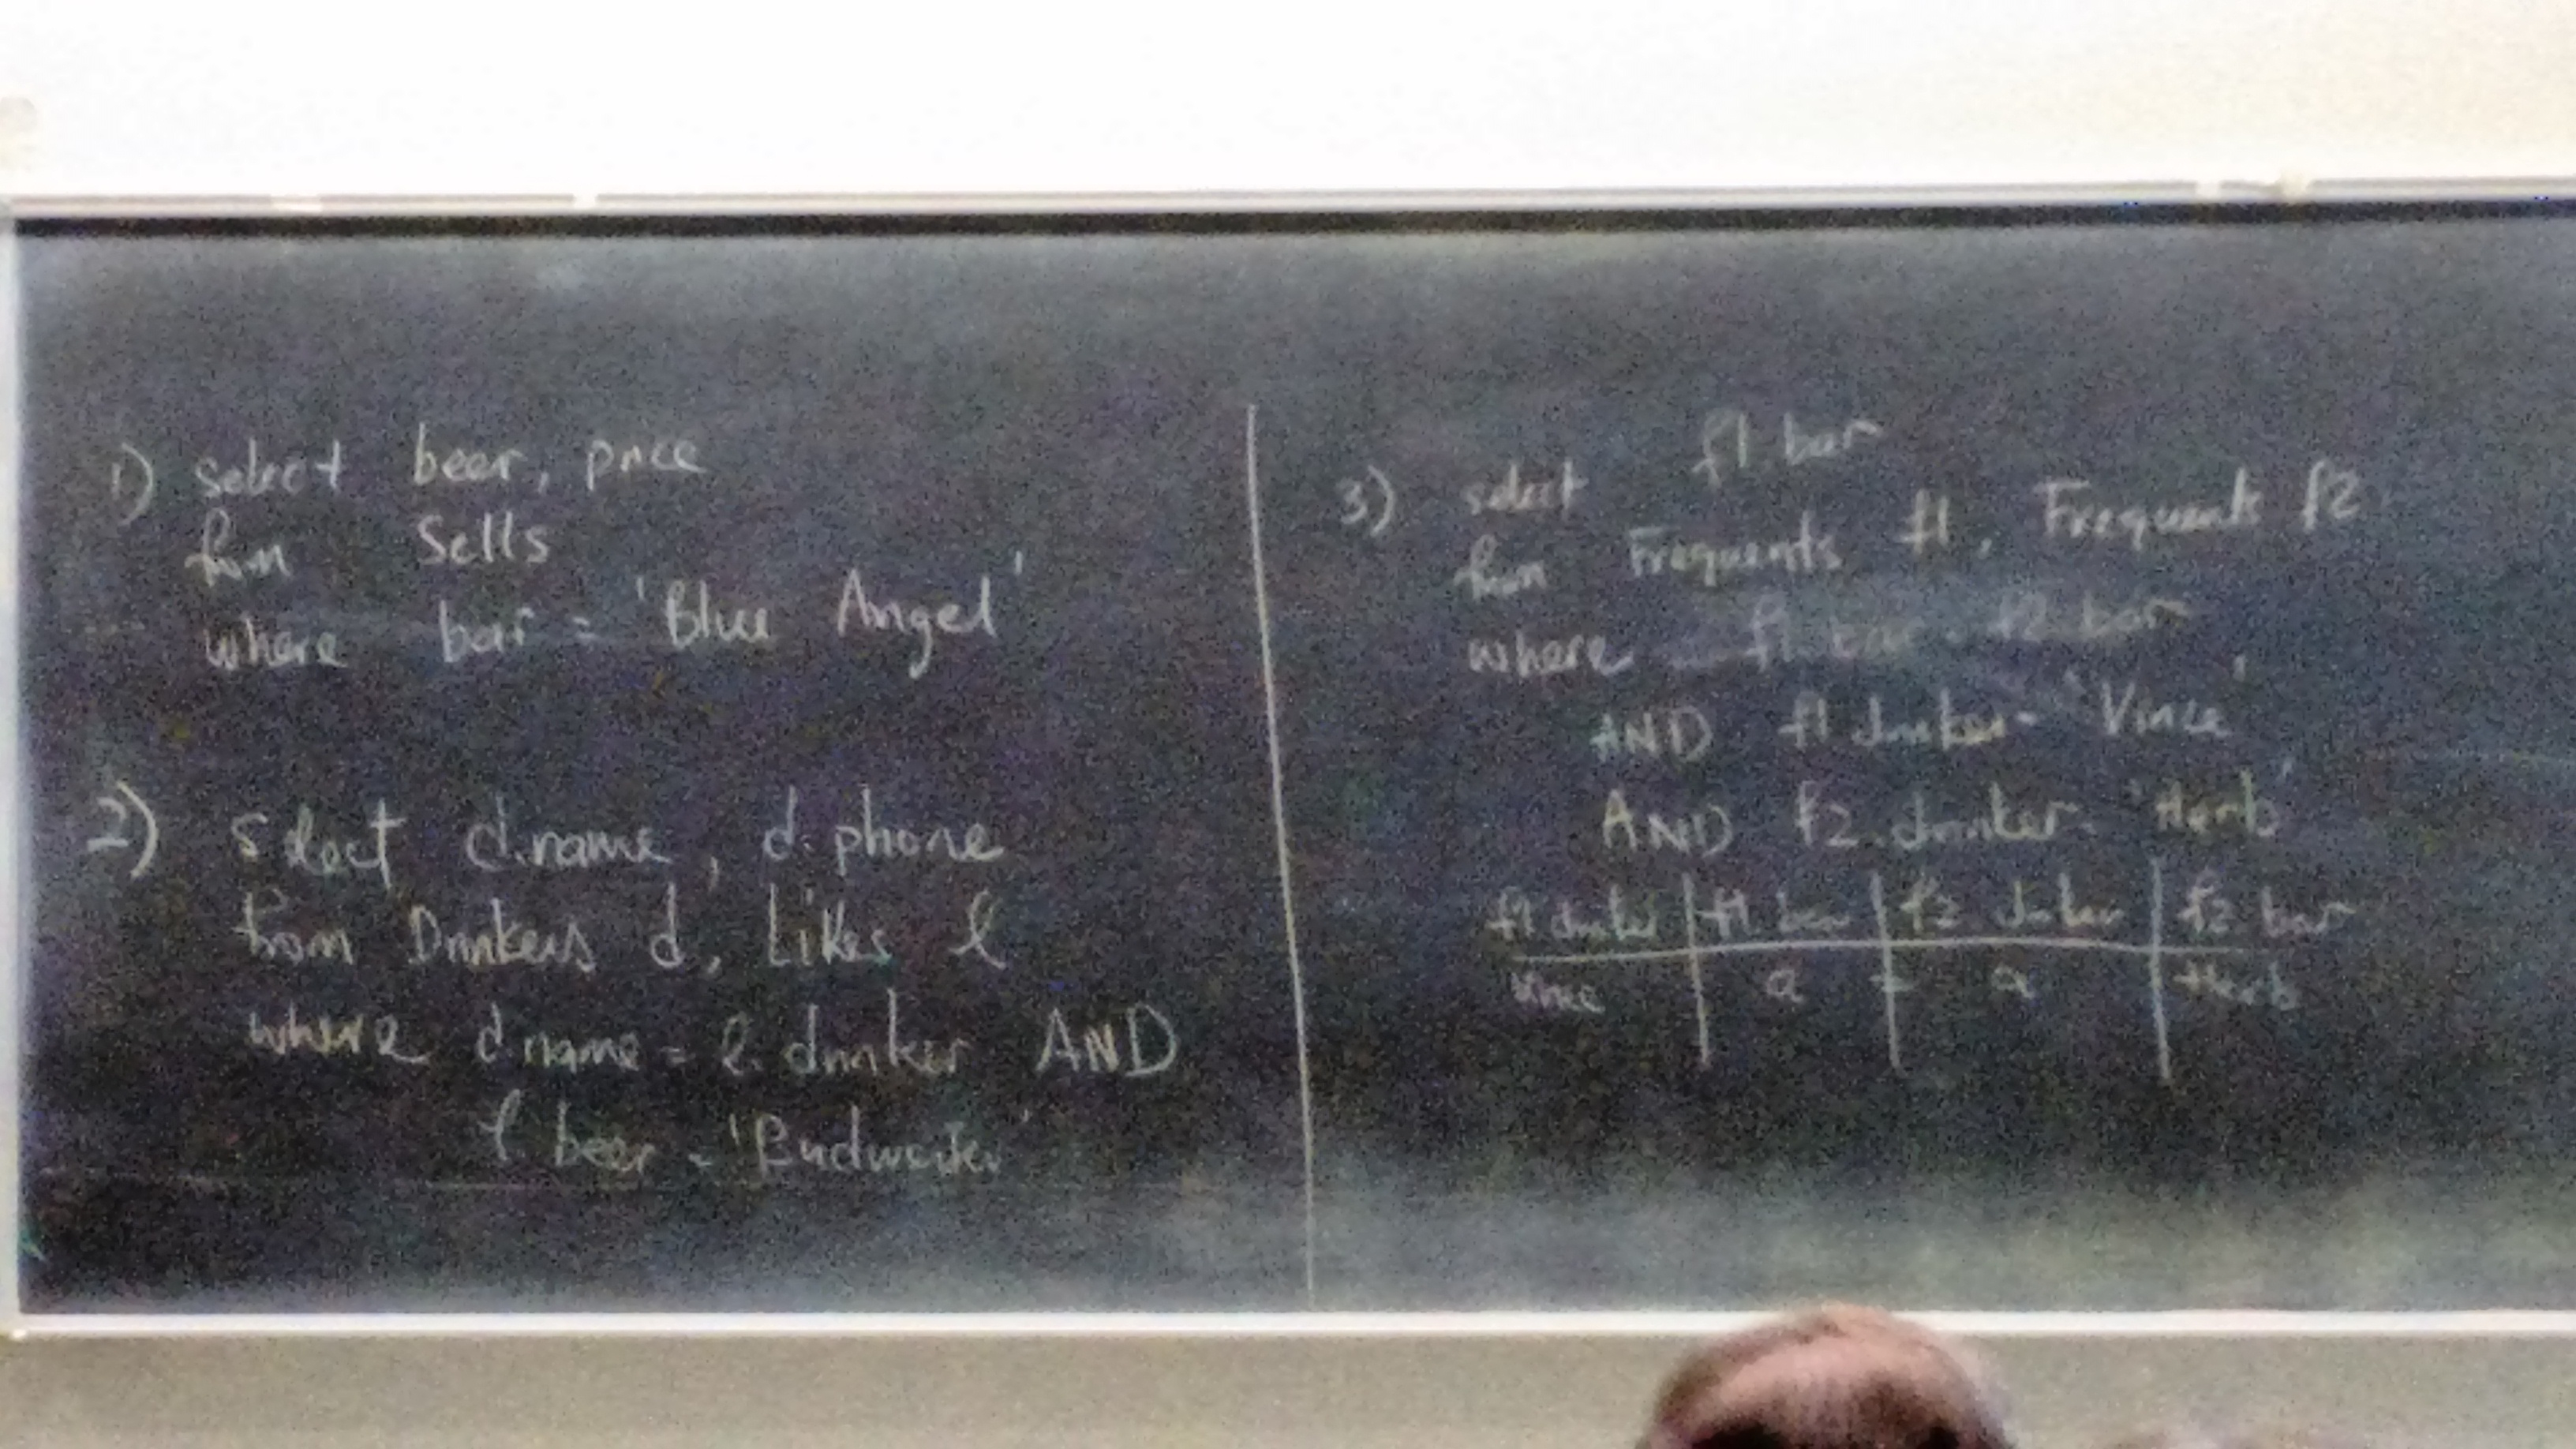 1) select beer, price
from Sells
where bar = 'Blue Angel'
2) select d.name, d.phone
from Drinkers d, Likes l
where d.name = l.drinker AND
l.beer = 'Budweiser'
3) select f1.bar
from Frequents f1, Frequents f2
where f1.bar = f2.bar
AND f1.drinker = 'Vince'
AND f2.drinker = 'Herb'
f1 drinker f1 bar f2 drinker f2 bar
Vince a = a Herb